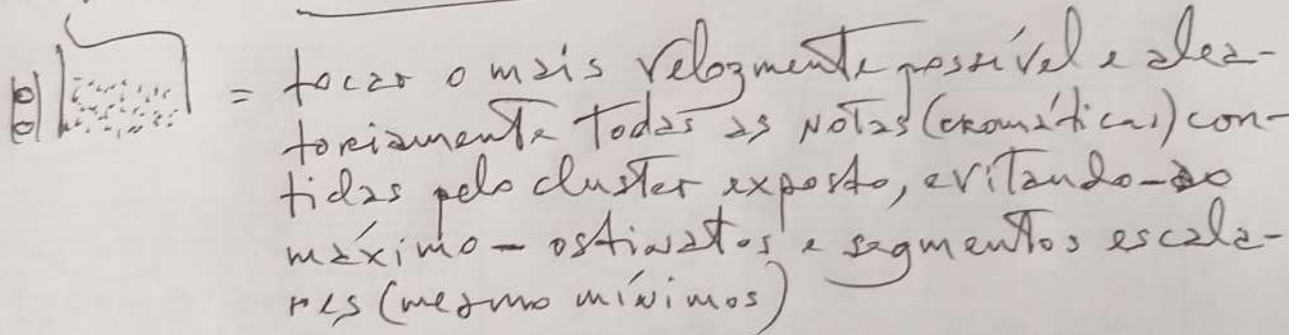 = tocar o mais velozmente possível e alea-
toriamente todas as notas (cromáticas) con-
tidas pelo cluster exposto, evitando - ao
máximo - ostinatos e segmentos escala-
res (mesmo mínimos)